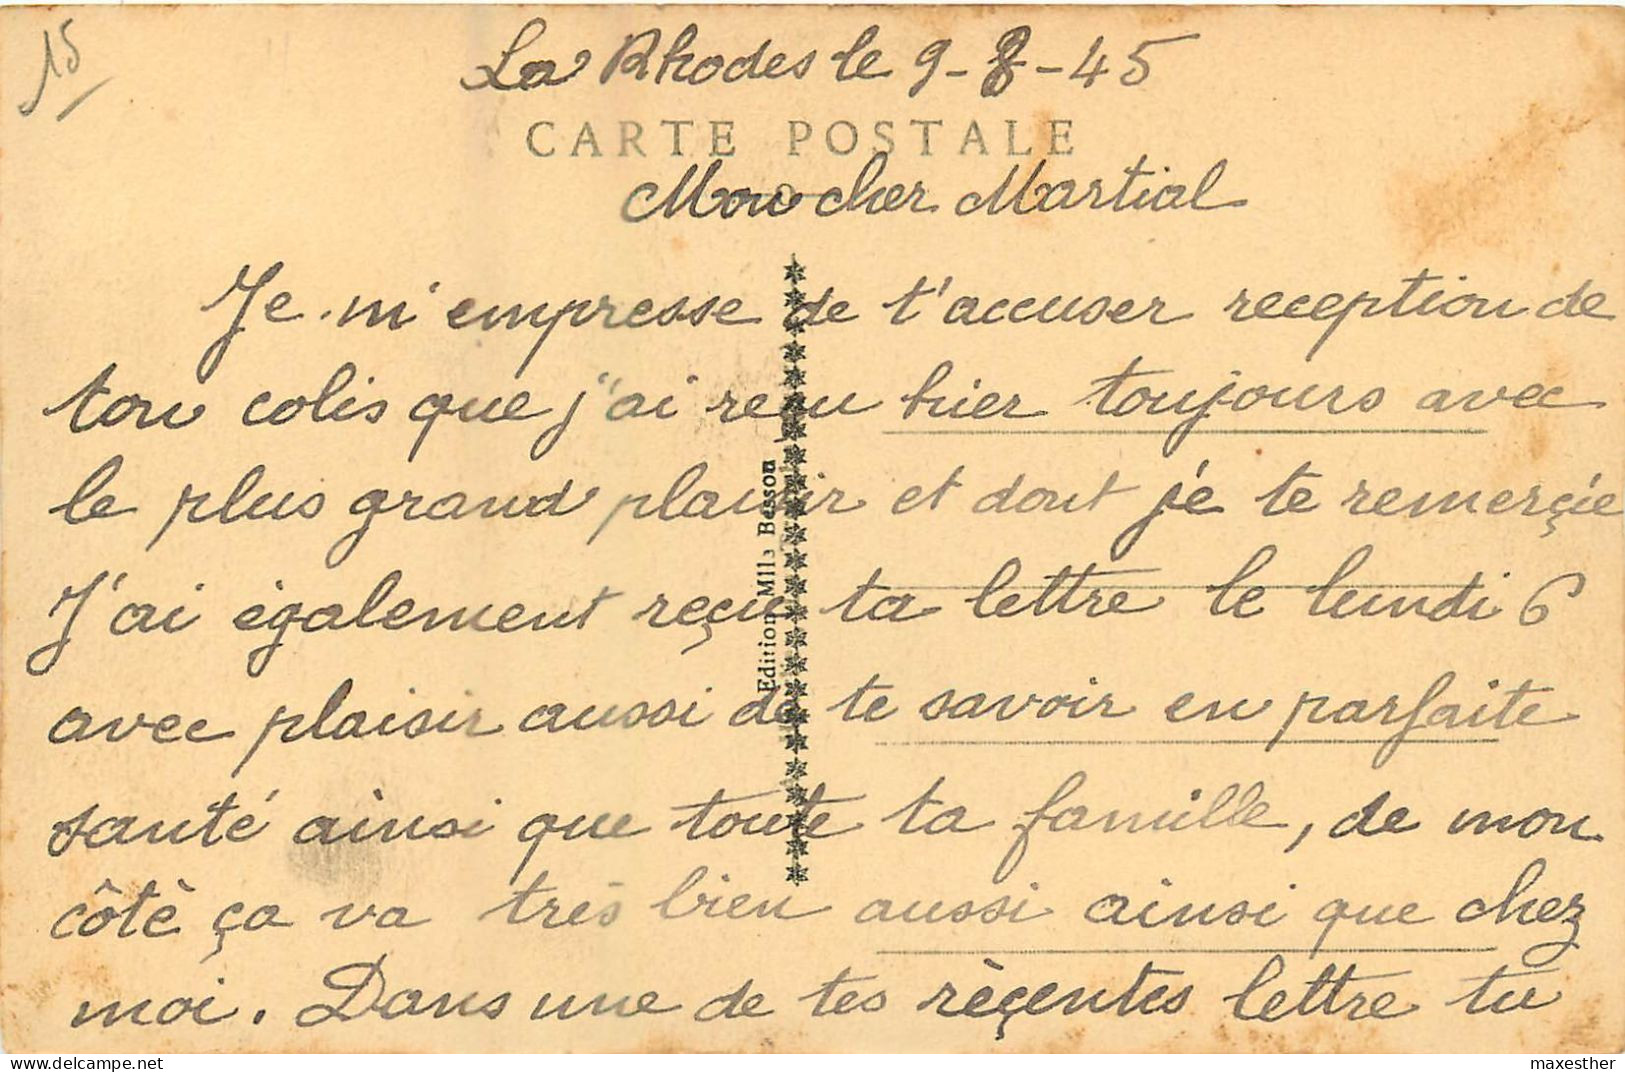 15
La Rhodes le 9-8-45
CARTE POSTALE
Mon cher Martial
Je m'empresse de t'accuser reception de
ton colis que j'ai reçu hier toujours avec
le plus grand plaisir et dont je te remerçie
J'ai également reçu ta lettre le lundi 6
avec plaisir aussi de te savoir en parfaite
santé ainsi que toute ta famille, de mon
côté ça va très bien aussi ainsi que chez
moi. Dans une de tes rèçentes lettre tu
Edition Mlle Bessou
maxesther